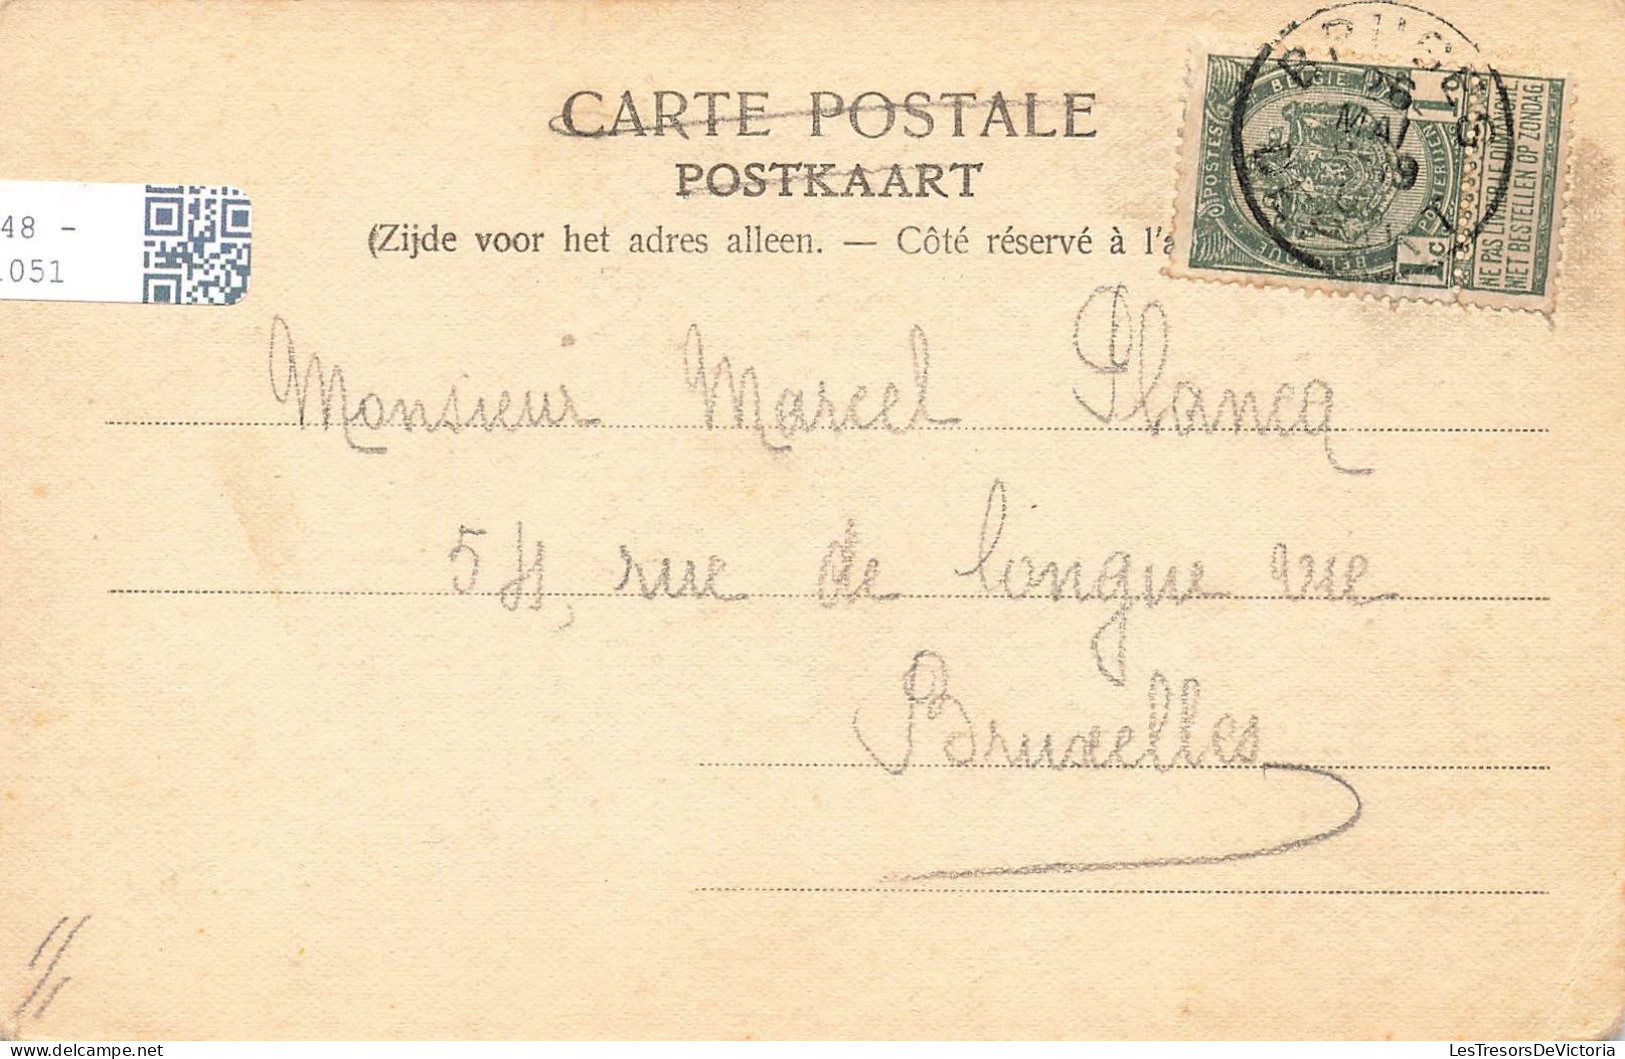 CARTE POSTALE
POSTKAART
(Zijde voor het adres alleen. — Côté réservé à l'a
48 -
1051
POSTES
BELGIE
1
1c
NE PAS LIVRER LE DIMANCHE
NIET BESTELLEN OP ZONDAG
MAI
Monsieur Marcel Plancq
54, rue de longue vie
Bruxelles
LesTresorsDeVictoria